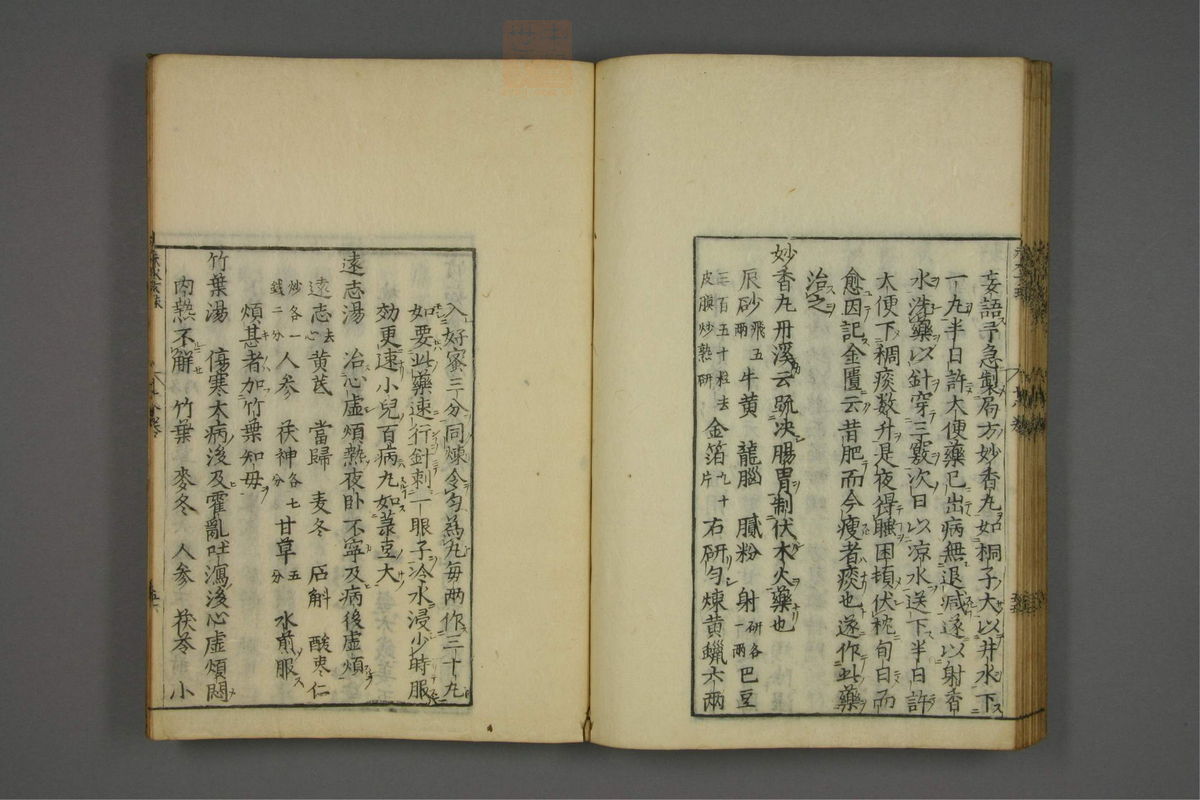 妄語予急製局方妙香丸如桐子大以井水下
一丸半日許大便藥已出病無退减遂以射香
水洗藥以針穿三竅次日以凉水送下半日許
大便下稠痰数升是夜得睡困頓伏枕旬日而
愈因記金匱云昔肥而今瘦者痰也遂作此藥
治之
妙香丸丹溪云疏决腸胃制伏木火藥也
辰砂飛五兩 牛黄 龍腦 膩粉 射研各一兩 巴豆
三百五十粒去皮膜炒熟研 金箔九十片 右研匀煉黄蠟六兩
入好蜜三分同煉令匀爲丸毎两作三十丸
如要此藥速行針刺一眼子冷水浸少時服
効更速小兒百病丸如菉豆大
遠志湯 治心虚煩熱夜卧不寧及病後虚煩
遠志去心 黄芪 當歸 麦冬 石斛 酸枣仁
炒各一錢二分 人参 茯神各七分 甘草五分 水煎服
煩甚者加竹葉知毋
竹葉湯 傷寒大病後及霍亂吐瀉後心虚煩悶
内熱不解 竹葉 麥冬 人参 茯苓 小